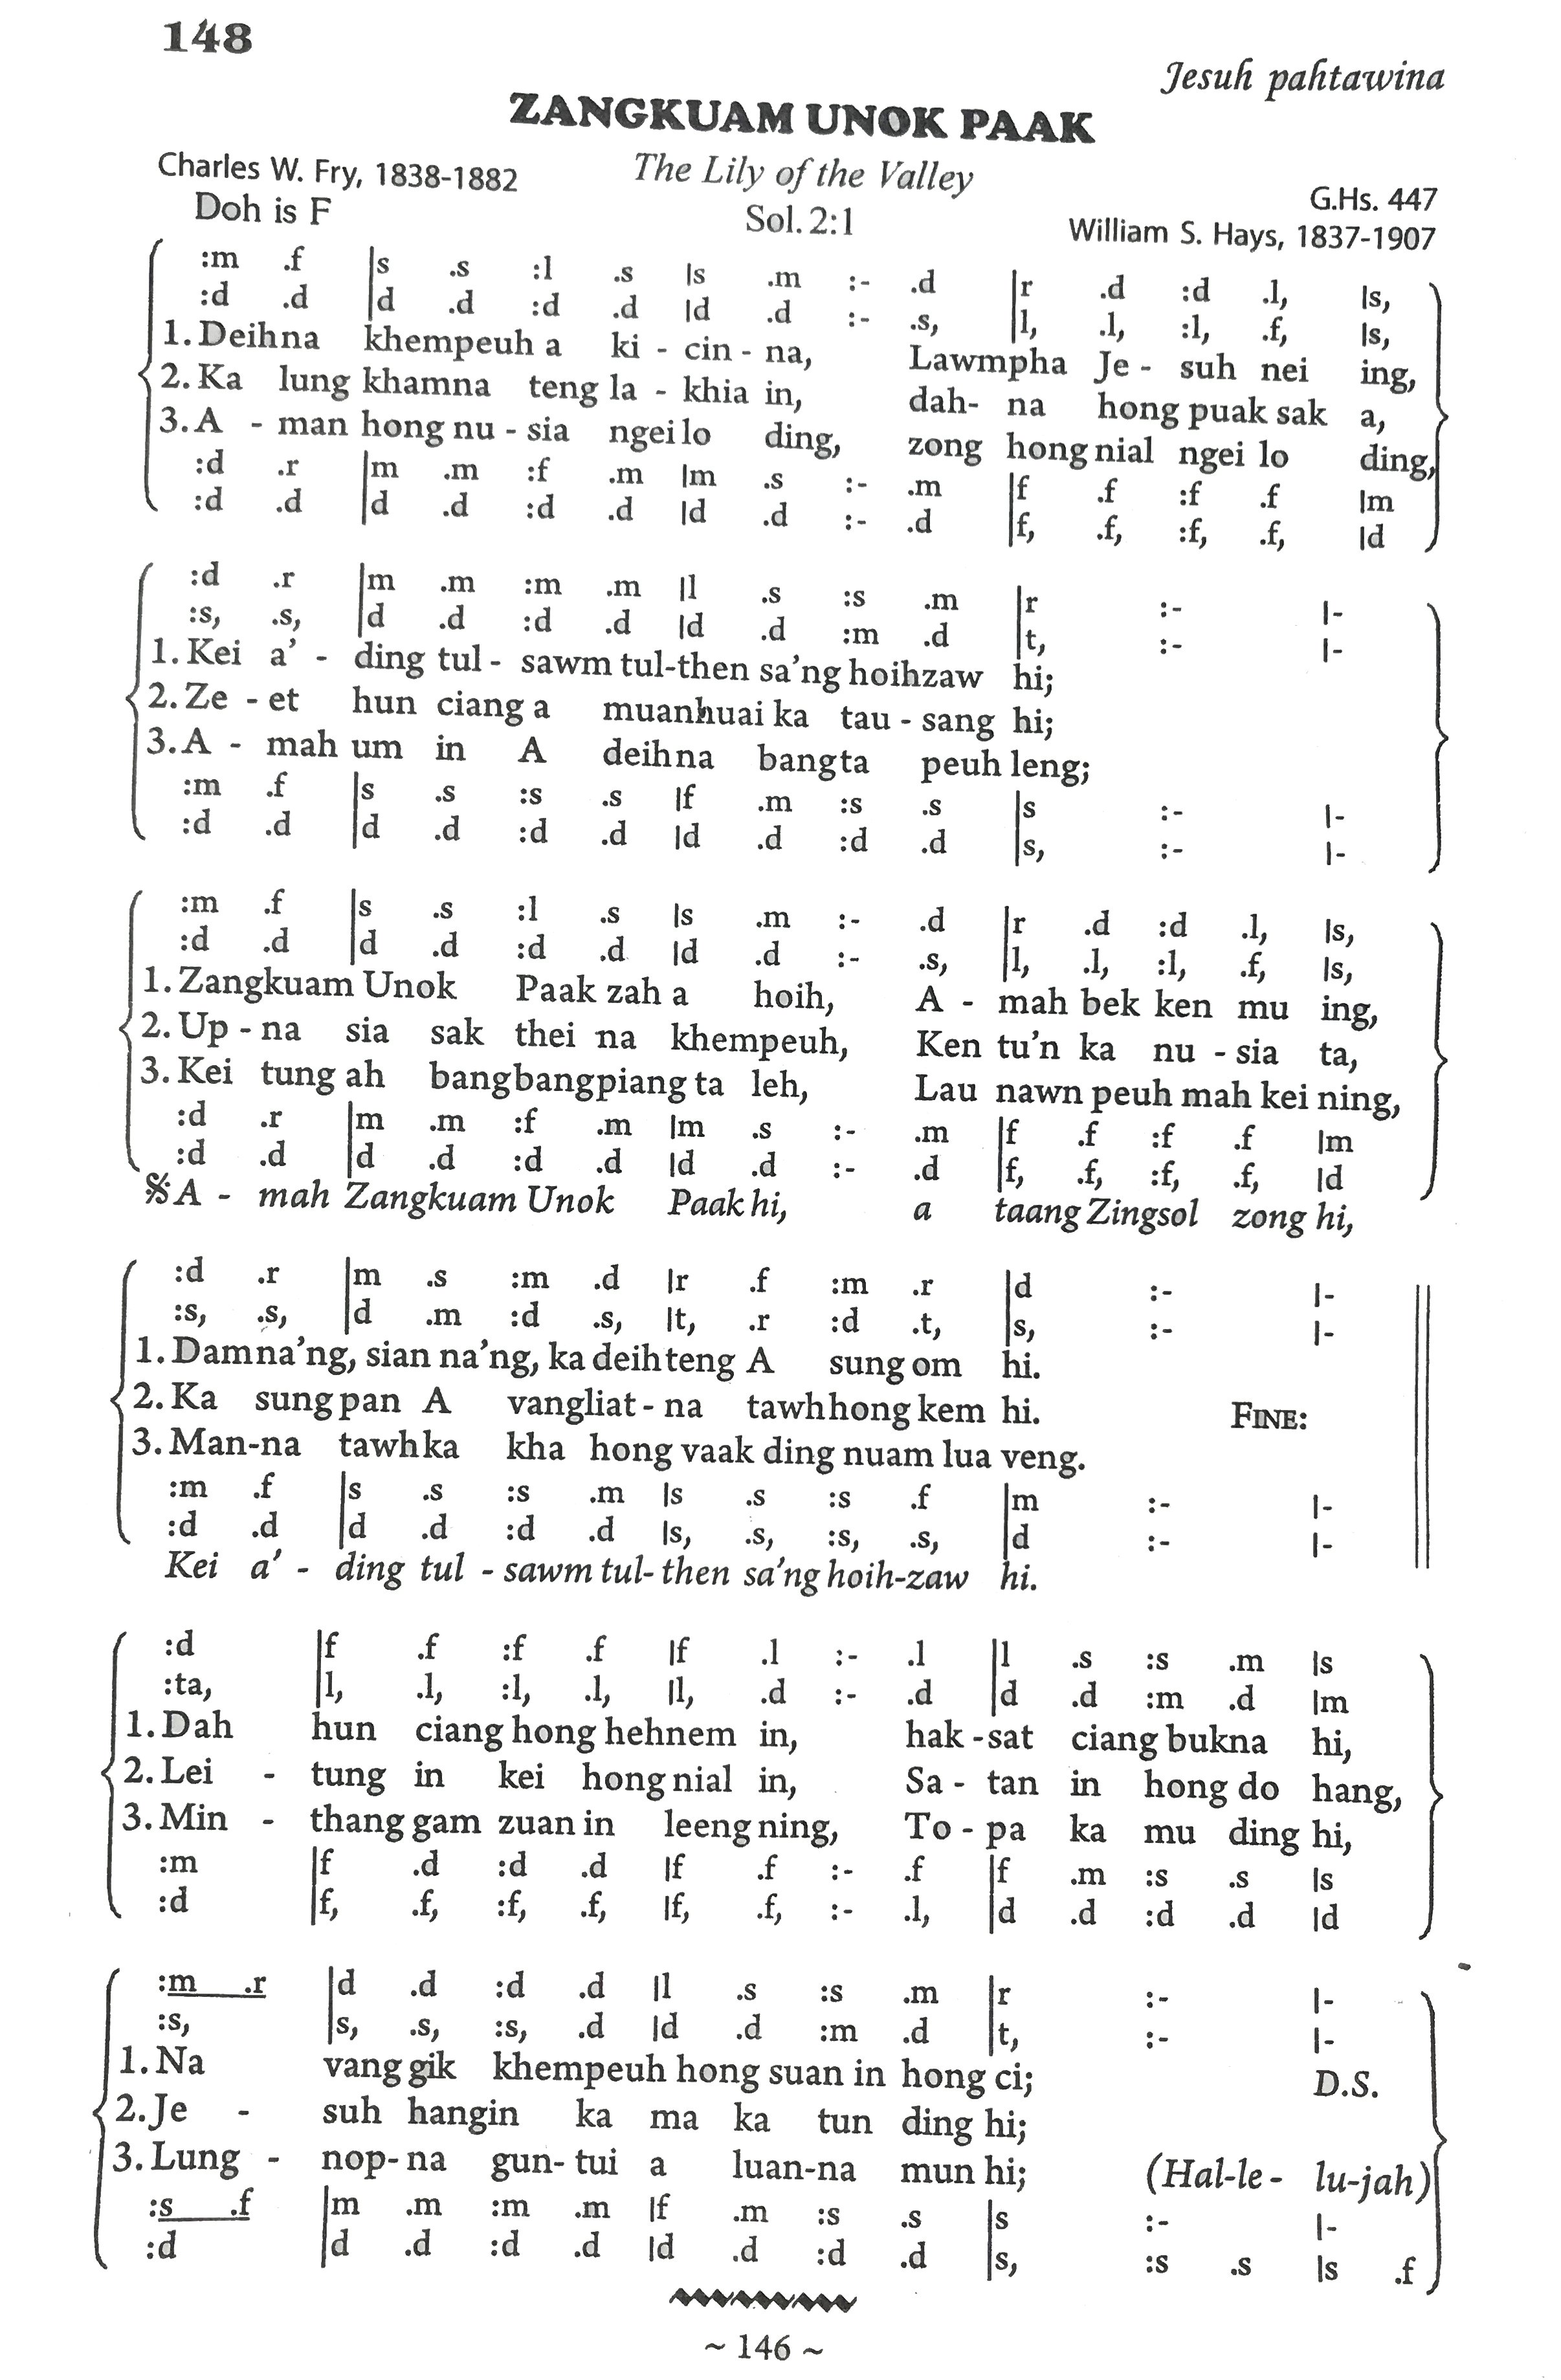 148
Jesuh pahtawina
ZANGKUAM UNOK PAAK
Charles W. Fry, 1838-1882
The Lily of the Valley
G.Hs. 447
Doh is F
Sol. 2:1
William S. Hays, 1837-1907
:m .f |s .s :l .s |s .m :- .d |r .d :d .l, |s,
:d .d |d .d :d .d |d .d :- .s, |l, .l, :l, .f, |s,
1. Deihna khempeuh a ki - cin - na, Lawmpha Je - suh nei ing,
2. Ka lung khamna teng la - khia in, dah- na hong puak sak a,
3. A - man hong nu - sia ngei lo ding, zong hong nial ngei lo ding,
:d .r |m .m :f .m |m .s :- .m |f .f :f .f |m
:d .d |d .d :d .d |d .d :- .d |f, .f, :f, .f, |d
:d .r |m .m :m .m |l .s :s .m |r :- |-
:s, .s, |d .d :d .d |d .d :m .d |t, :- |-
1. Kei a' - ding tul - sawm tul-then sa'ng hoihzaw hi;
2. Ze - et hun ciang a muanhuai ka tau - sang hi;
3. A - mah um in A deihna bangta peuh leng;
:m .f |s .s :s .s |f .m :s .s |s :- |-
:d .d |d .d :d .d |d .d :d .d |s, :- |-
:m .f |s .s :l .s |s .m :- .d |r .d :d .l, |s,
:d .d |d .d :d .d |d .d :- .s, |l, .l, :l, .f, |s,
1. Zangkuam Unok Paak zah a hoih, A - mah bek ken mu ing,
2. Up - na sia sak thei na khempeuh, Ken tu'n ka nu - sia ta,
3. Kei tung ah bangbangpiang ta leh, Lau nawn peuh mah kei ning,
:d .r |m .m :f .m |m .s :- .m |f .f :f .f |m
:d .d |d .d :d .d |d .d :- .d |f, .f, :f, .f, |d
𝄋A - mah Zangkuam Unok Paak hi, a taang Zingsol zong hi,
:d .r |m .s :m .d |r .f :m .r |d :- |-
:s, .s, |d .m :d .s, |t, .r :d .t, |s, :- |-
1. Damna'ng, sian na'ng, ka deih teng A sung om hi.
2. Ka sung pan A vangliat - na tawh hong kem hi. FINE:
3. Man-na tawh ka kha hong vaak ding nuam lua veng.
:m .f |s .s :s .m |s .s :s .f |m :- |-
:d .d |d .d :d .d |s, .s, :s, .s, |d :- |-
Kei a' - ding tul - sawm tul- then sa'ng hoih-zaw hi.
:d |f .f :f .f |f .l :- .l |l .s :s .m |s
:ta, |l, .l, :l, .l, |l, .d :- .d |d .d :m .d |m
1. Dah hun ciang hong hehnem in, hak -sat ciang bukna hi,
2. Lei - tung in kei hong nial in, Sa - tan in hong do hang,
3. Min - thang gam zuan in leeng ning, To - pa ka mu ding hi,
:m |f .d :d .d |f .f :- .f |f .m :s .s |s
:d |f, .f, :f, .f, |f, .f, :- .l, |d .d :d .d |d
:m .r |d .d :d .d |l .s :s .m |r :- |-
:s, |s, .s, :s, .d |d .d :m .d |t, :- |-
1. Na vang gik khempeuh hong suan in hong ci; D.S.
2. Je - suh hangin ka ma ka tun ding hi;
3. Lung - nop- na gun- tui a luan-na mun hi; (Hal-le - lu-jah)
:s .f |m .m :m .m |f .m :s .s |s :- |-
:d |d .d :d .d |d .d :d .d |s, :s .s |s .f
~ 146 ~